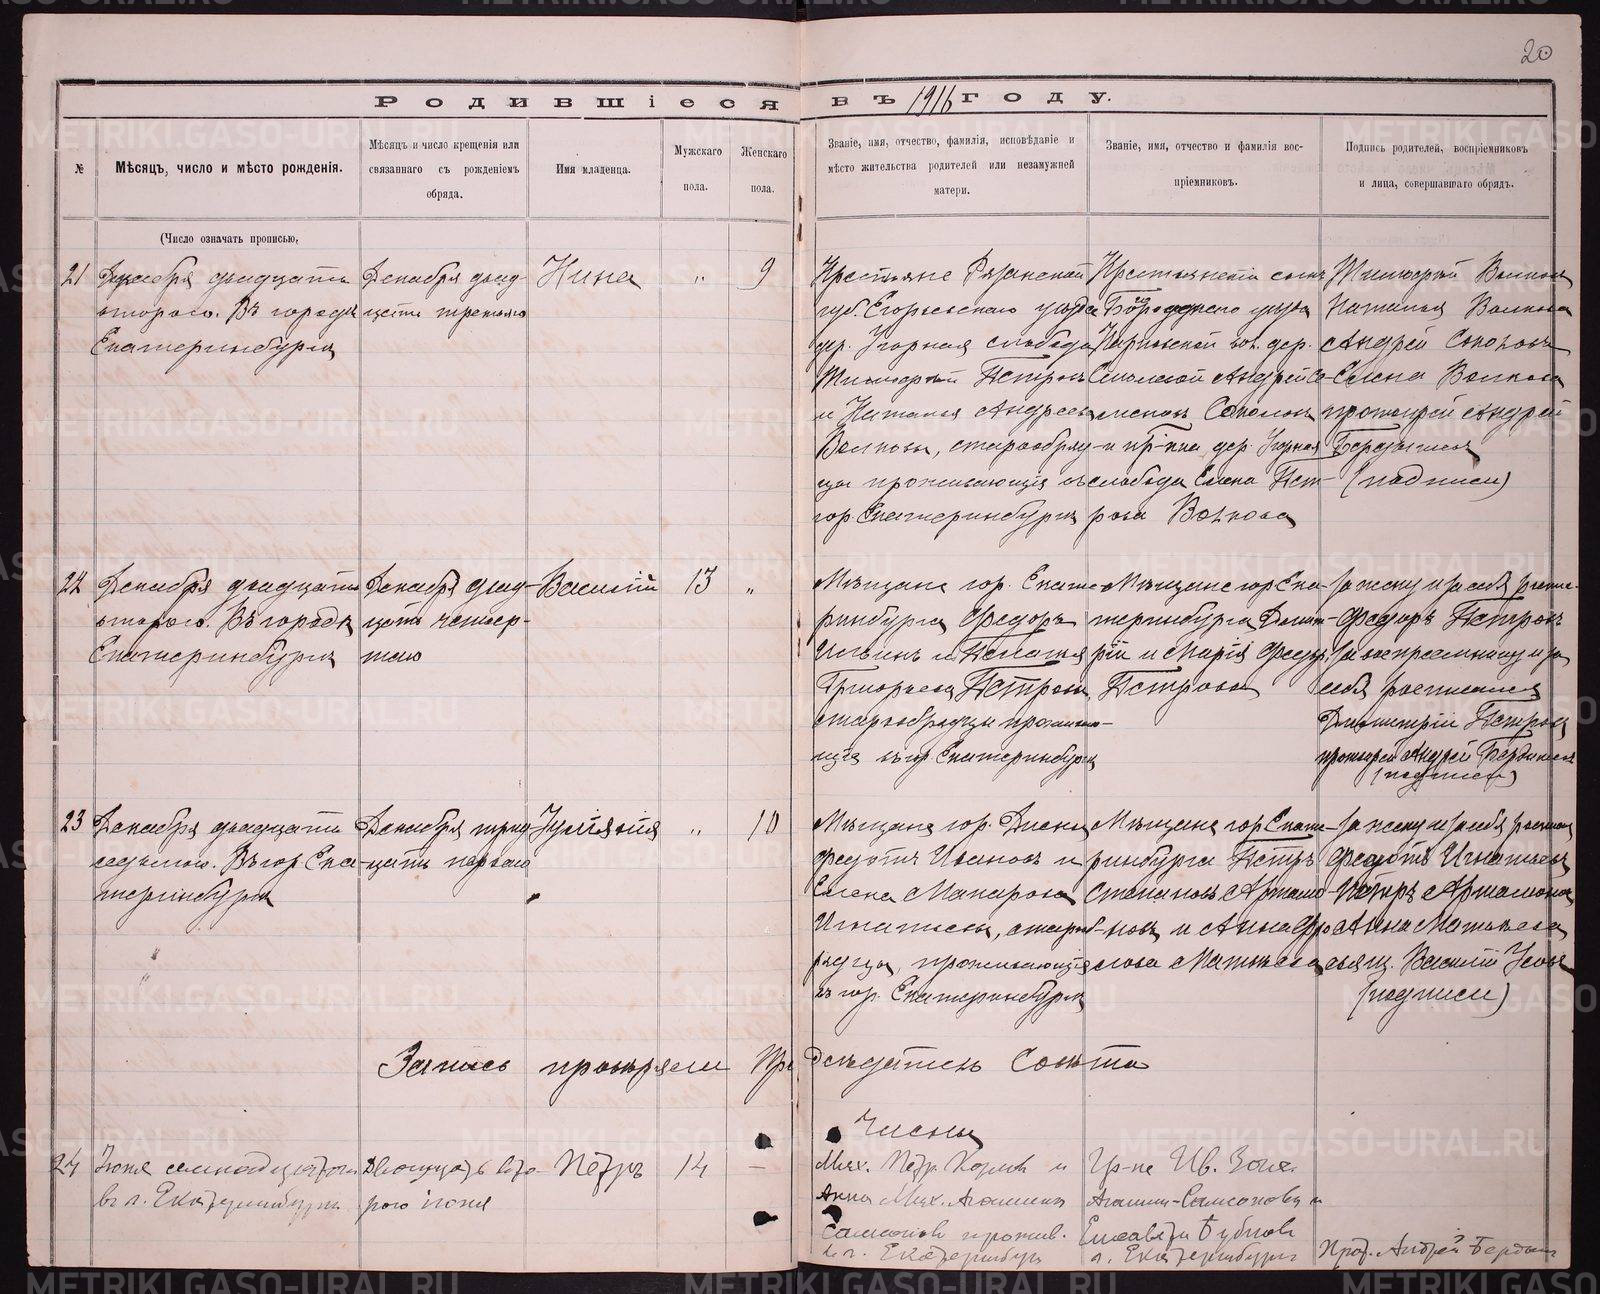 20
Родившіеся въ 1916 году.
№
Мѣсяцъ, число и мѣсто рожденія.
Мѣсяцъ и число крещенія или
связаннаго съ рожденіемъ
обряда.
Имя младенца.
Мужскаго
пола.
Женскаго
пола.
Званіе, имя, отчество, фамилія, исповѣданіе и
мѣсто жительства родителей или незамужней
матери.
Званіе, имя, отчество и фамилія вос-
пріемниковъ.
Подпись родителей, воспріемниковъ
и лица, совершавшаго обрядъ.
(Число означать прописью,
21
Декабря двадцать
второго. Въ городѣ
Екатеринбургѣ
Декабря двад-
цать третьяго
Нина
"
9
Крестьяне Рязанской
губ. Егорьевскаго уѣзда
дер. Угорная слобода
Тимофей Петровъ
и Наталья Андреева
Волковы, старообряд-
цы проживающіе въ
гор. Екатеринбургѣ
Богородскаго уѣзда
вол. дер.
Андрей Се-
меновъ Соколовъ
и кр-нка дер. Угорная
слобода Елена Пет-
рова Волкова
Тимофей Волковъ
Наталья Волкова
Андрей Соколовъ
Елена Волкова
протоіерей Андрей
(подписи)
22
Декабря двадцать
второго. Въ городѣ
Екатеринбургѣ
Декабря двад-
цать четвер-
таго
Василій
13
"
Мѣщане гор. Екате-
ринбурга Федоръ
и Пелагея
Григорьева Петровы
старообрядцы прожива-
ющіе въ гор. Екатеринбургѣ
Мѣщане гор Ека-
теринбурга Димит-
рій и Марія Федор.
Петровы
За жену и за себя распис.
Федоръ Петровъ
За воспреемницу и за
себя росписался
Димитрій Петровъ
протоіерей Андрей
(подписи)
23
Декабря двадцать
седьмого. Въ гор Ека-
теринбургѣ
Декабря трид-
цать перваго
Іуліянія
"
10
Мѣщане гор.
Федотъ Ивановъ и
Елена Макарова
Игнатьевы, старооб-
рядцы, проживающіе
въ гор. Екатеринбургѣ
Мѣщане гор Екате-
ринбурга Петръ
Степановъ Артамо-
новъ и Анна Фро-
лова Матвѣева
За жену и за себя роспис.
Федотъ Игнатьевъ
Петръ Артамоновъ
Анна Матвѣева
свящ. Василій
(подписи)
Запись провѣряли Предсѣдатель Совѣта
Члены
24
Іюня семнадцатаго
въ г. Екатеринбургѣ
Двадцать вто-
рого іюня
Петръ
14
—
Мих. Петр. и
Анна Мих.
прожив.
въ г. Екатеринбург
Гр-не Ив.
и
Елизавета Бубнова
г. Екатеринбургъ
Прот. Андрей